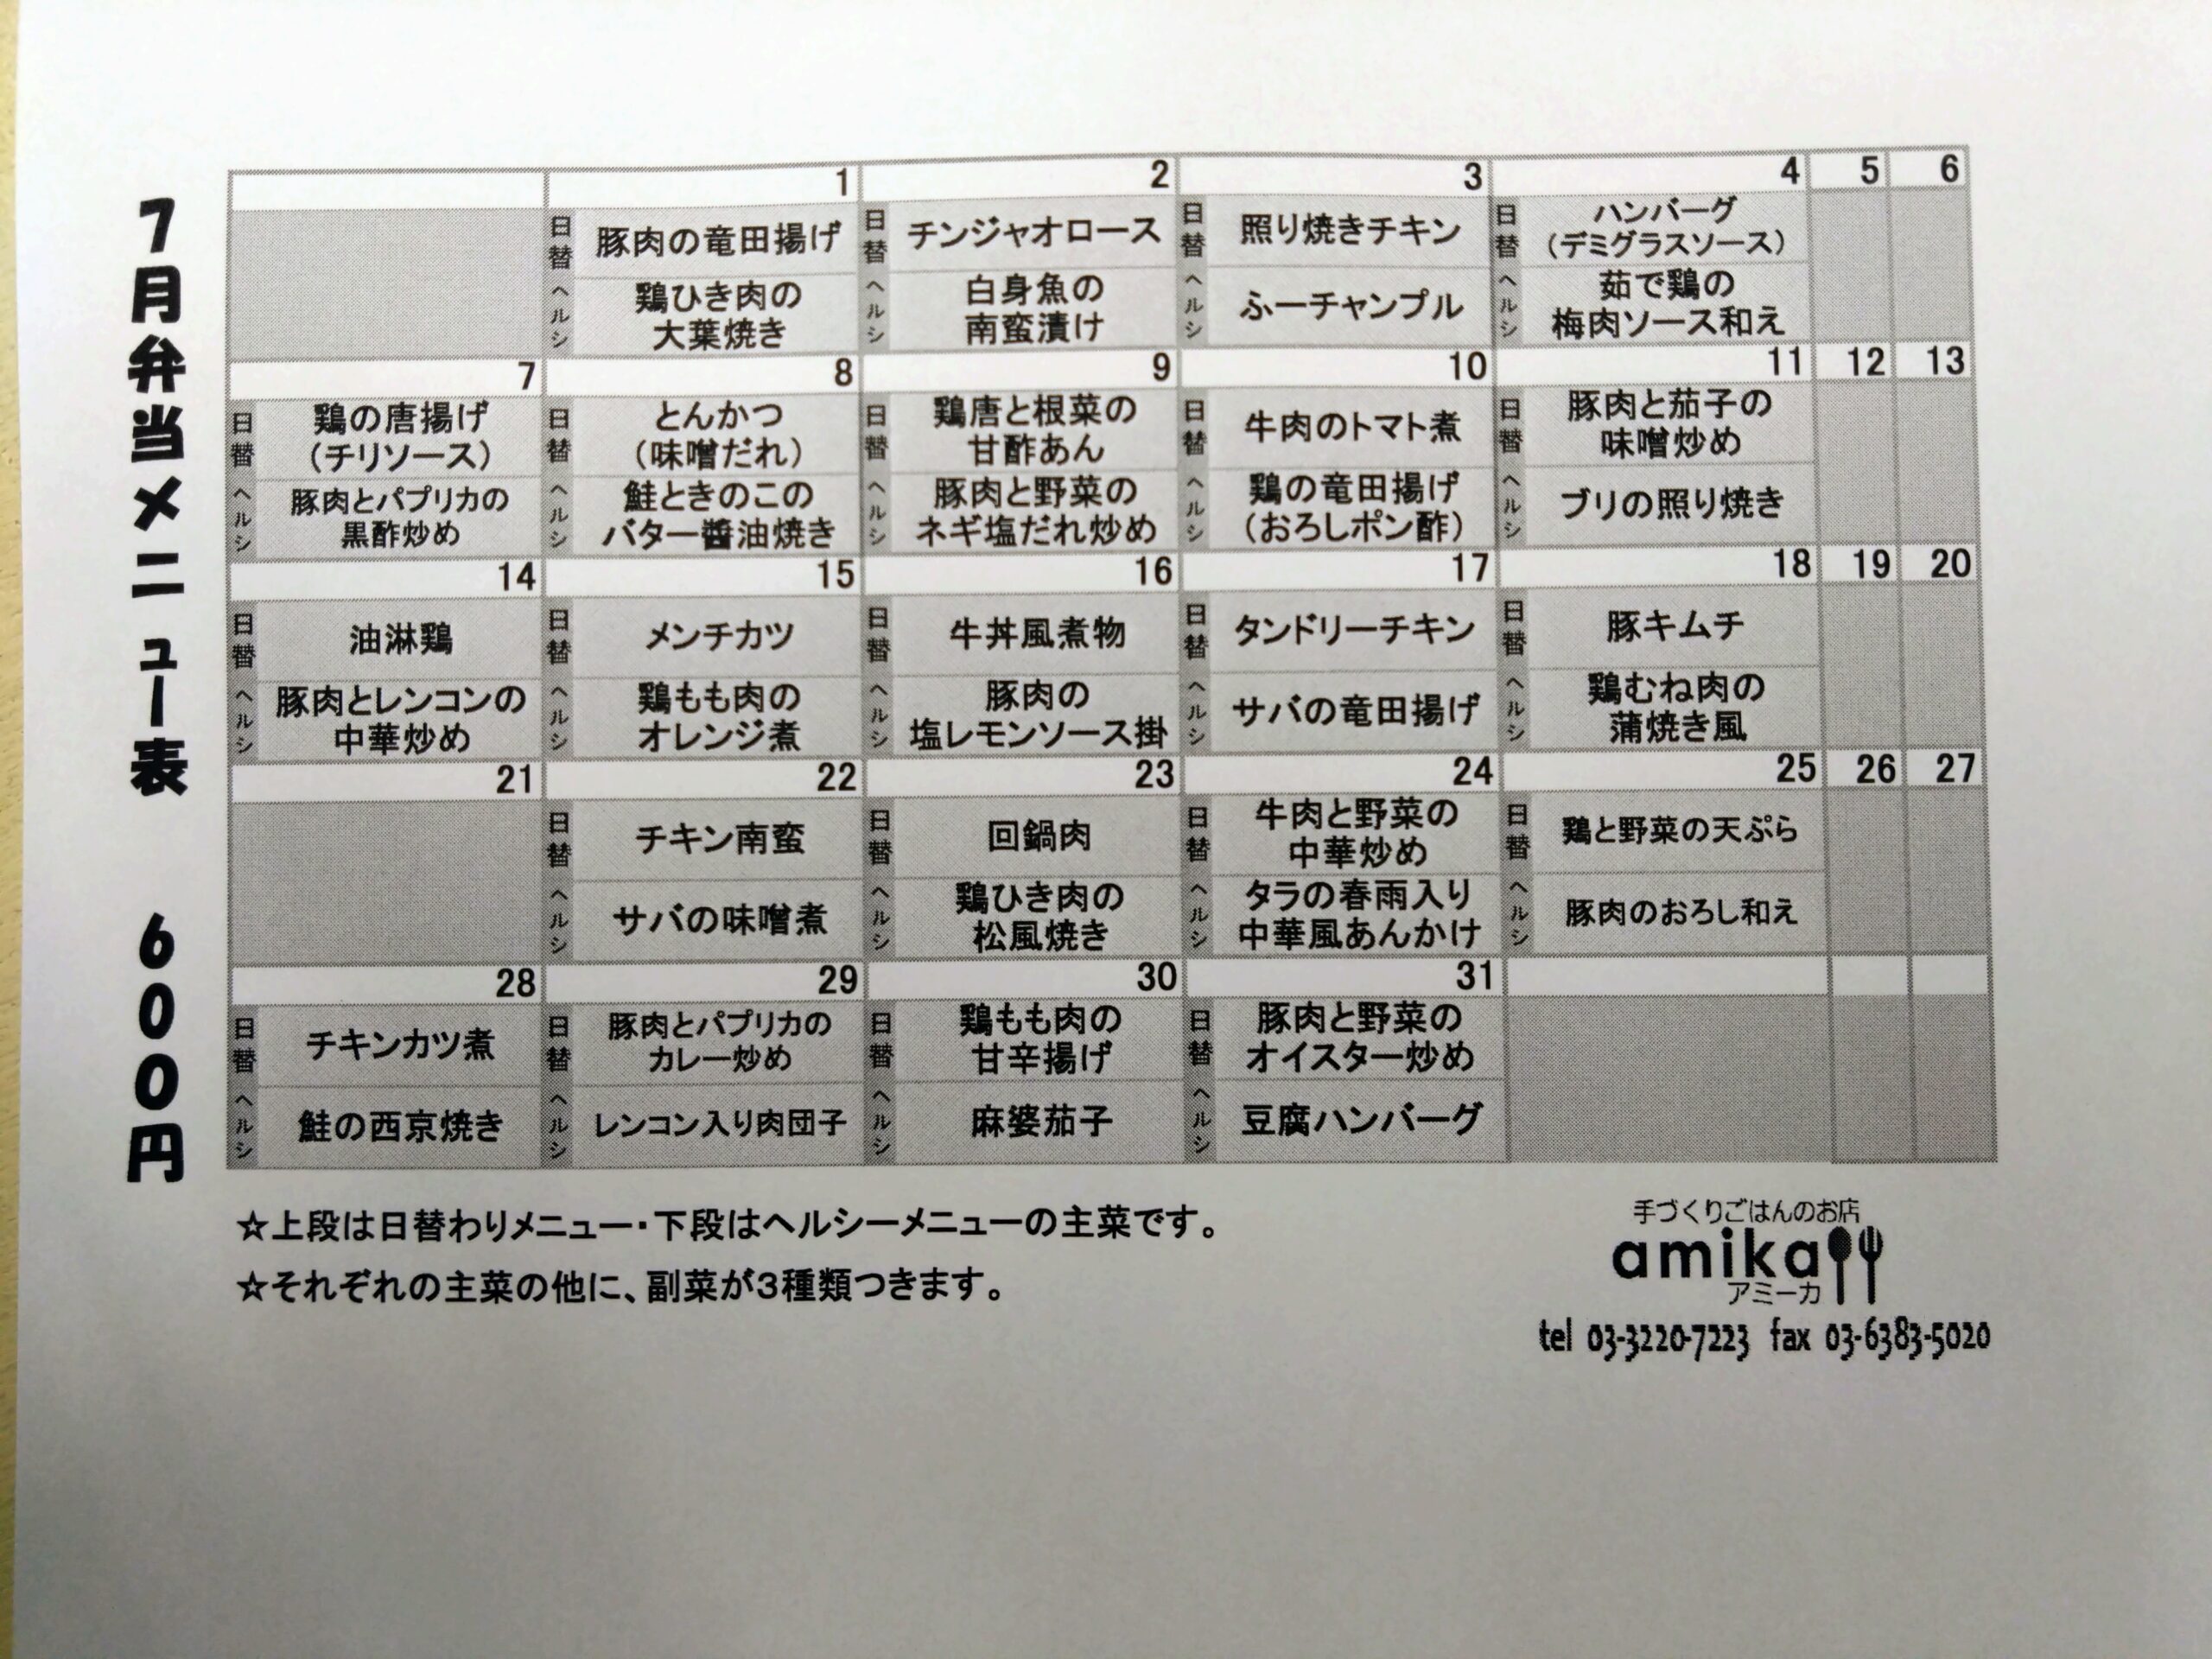 7月弁当メニュー表 600円
1 2 3 4 5 6
日替 豚肉の竜田揚げ
ヘルシ 鶏ひき肉の
大葉焼き
日替 チンジャオロース
ヘルシ 白身魚の
南蛮漬け
日替 照り焼きチキン
ヘルシ ふーチャンプル
日替 ハンバーグ
(デミグラスソース)
ヘルシ 茹で鶏の
梅肉ソース和え
7 8 9 10 11 12 13
日替 鶏の唐揚げ
(チリソース)
ヘルシ 豚肉とパプリカの
黒酢炒め
日替 とんかつ
(味噌だれ)
ヘルシ 鮭ときのこの
バター醬油焼き
日替 鶏唐と根菜の
甘酢あん
ヘルシ 豚肉と野菜の
ネギ塩だれ炒め
日替 牛肉のトマト煮
ヘルシ 鶏の竜田揚げ
(おろしポン酢)
日替 豚肉と茄子の
味噌炒め
ヘルシ ブリの照り焼き
14 15 16 17 18 19 20
日替 油淋鶏
ヘルシ 豚肉とレンコンの
中華炒め
日替 メンチカツ
ヘルシ 鶏もも肉の
オレンジ煮
日替 牛丼風煮物
ヘルシ 豚肉の
塩レモンソース掛
日替 タンドリーチキン
ヘルシ サバの竜田揚げ
日替 豚キムチ
ヘルシ 鶏むね肉の
蒲焼き風
21 22 23 24 25 26 27
日替 チキン南蛮
ヘルシ サバの味噌煮
日替 回鍋肉
ヘルシ 鶏ひき肉の
松風焼き
日替 牛肉と野菜の
中華炒め
ヘルシ タラの春雨入り
中華風あんかけ
日替 鶏と野菜の天ぷら
ヘルシ 豚肉のおろし和え
28 29 30 31
日替 チキンカツ煮
ヘルシ 鮭の西京焼き
日替 豚肉とパプリカの
カレー炒め
ヘルシ レンコン入り肉団子
日替 鶏もも肉の
甘辛揚げ
ヘルシ 麻婆茄子
日替 豚肉と野菜の
オイスター炒め
ヘルシ 豆腐ハンバーグ
☆上段は日替わりメニュー・下段はヘルシーメニューの主菜です。
☆それぞれの主菜の他に、副菜が3種類つきます。
手づくりごはんのお店
amika
アミーカ
tel 03-3220-7223 fax 03-6383-5020